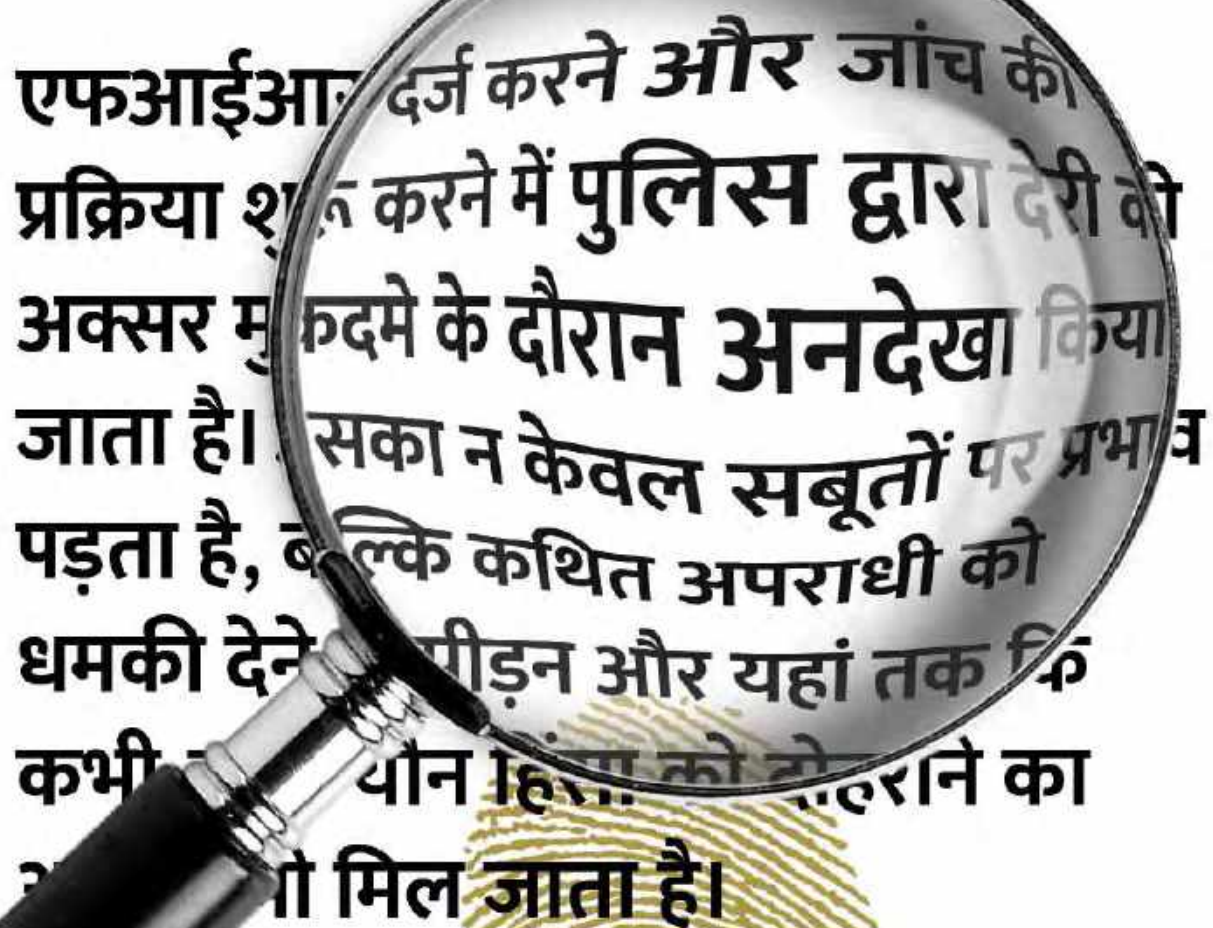 एफआईआर दर्ज करने और जांच की
प्रक्रिया शुरू करने में पुलिस द्वारा देरी को
अक्सर मुकदमे के दौरान अनदेखा किया
जाता है। इसका न केवल सबूतों पर प्रभाव
पड़ता है, बल्कि कथित अपराधी को
धमकी देने और यहां तक कि
कभी यौन हिंसा को दोहराने का
मिल जाता है।